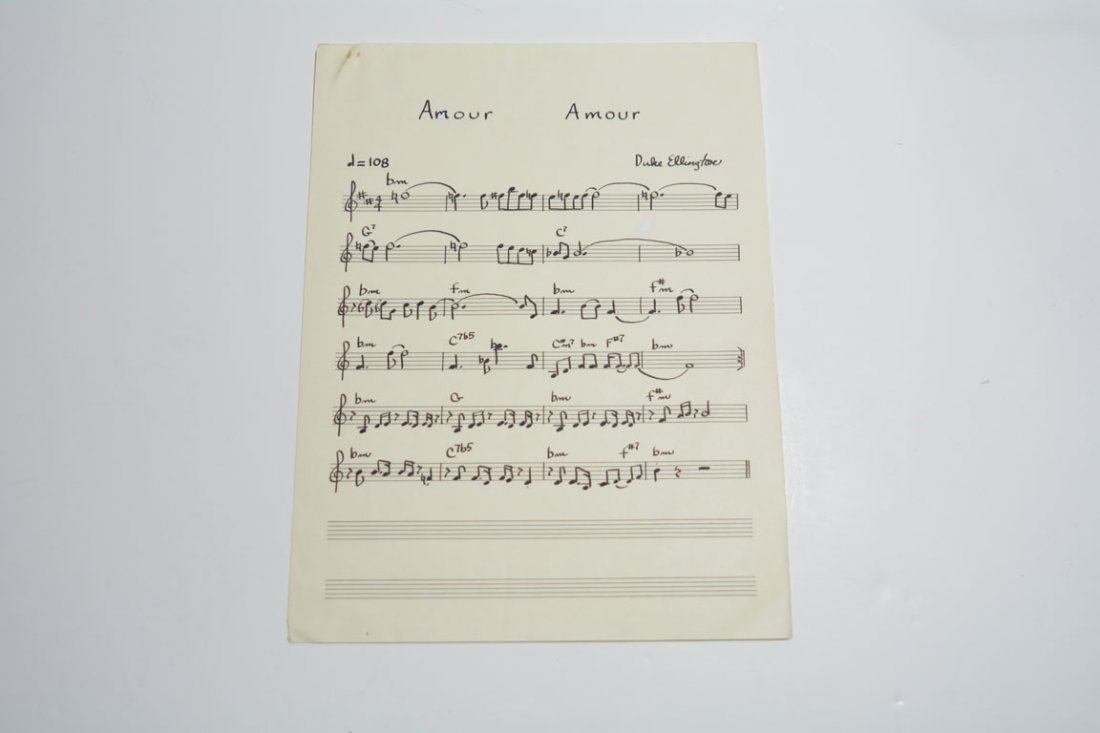 Amour Amour
♩=108 Duke Ellington
bm
G7 C7
bm fm bm f#m
bm C7b5 C#m7 bm F#7 bm
bm G bm f#m
bm C7b5 bm f#7 bm